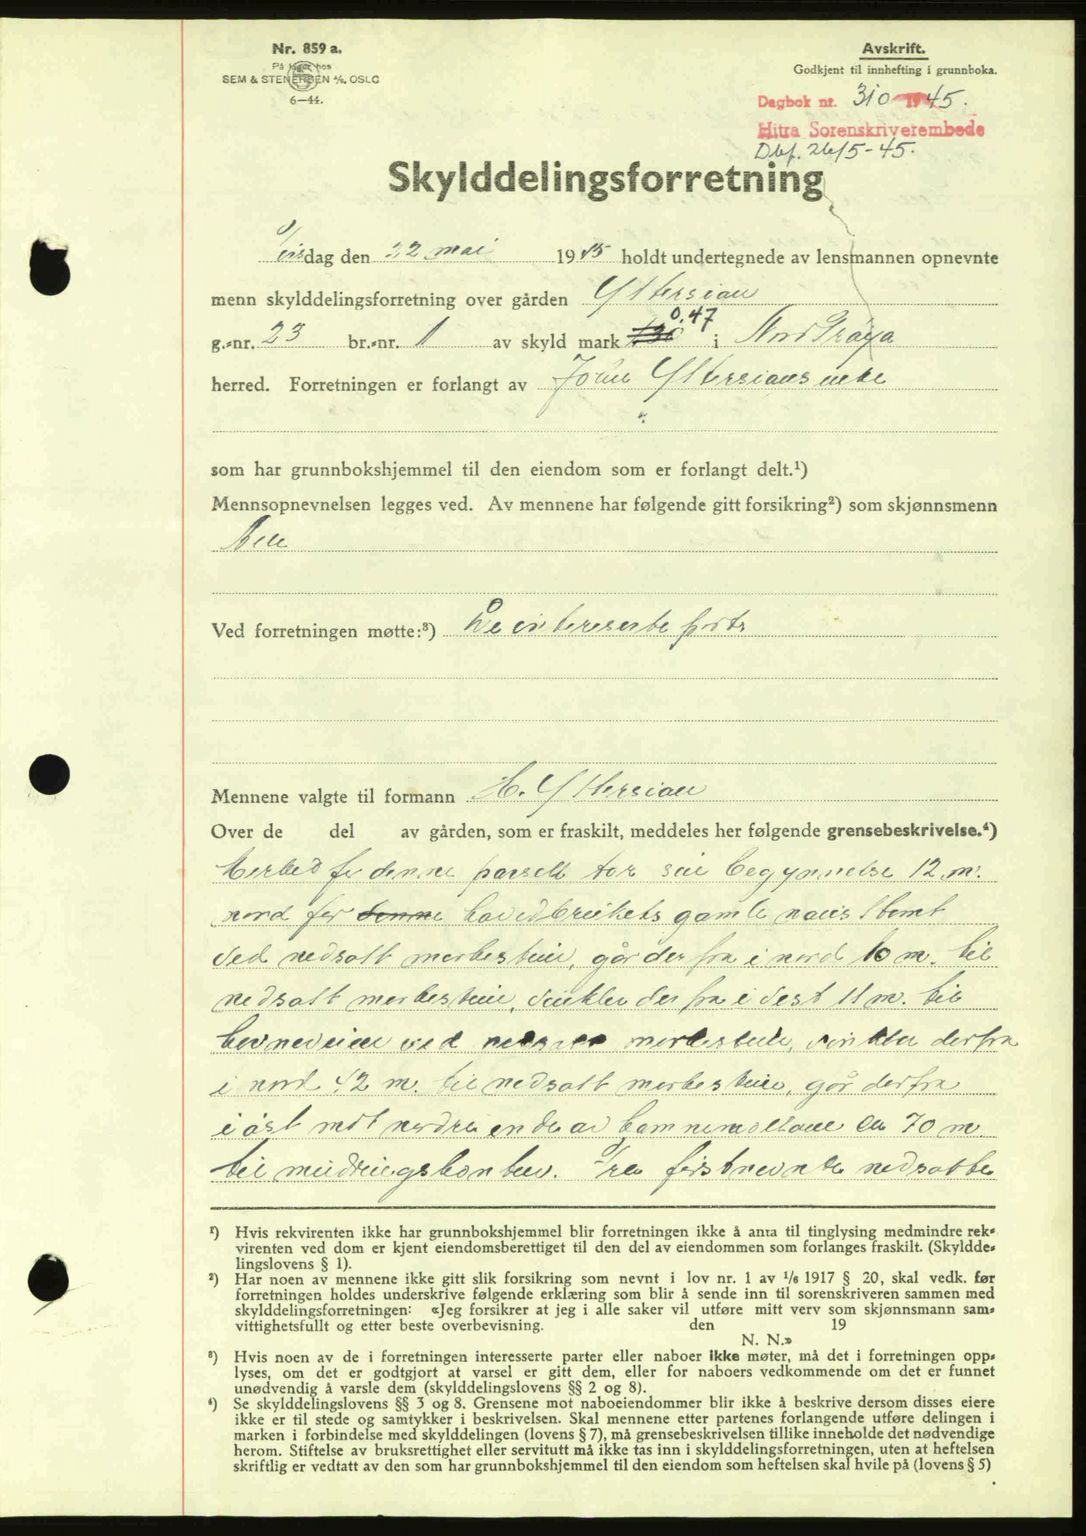 Nr. 859 a.
På lager hos
SEM & STENERSEN A/S. OSLO
6—44.
Avskrift.
Godkjent til innhefting i grunnboka.
Dagbok nr. 310 1945.
Hitra Sorenskriverembede
Dbf. 26/5-45.
Skylddelingsforretning
Tirsdag den 22 mai 1945 holdt undertegnede av lensmannen opnevnte
menn skylddelingsforretning over gården Yttersian
g.-nr. 23 br.-nr. 1 av skyld mark 0.47 i Nord Frøya
herred. Forretningen er forlangt av John Yttersians enke
som har grunnbokshjemmel til den eiendom som er forlangt delt.¹)
Mennsopnevnelsen legges ved. Av mennene har følgende gitt forsikring²) som skjønnsmenn
Alle
Ved forretningen møtte:³) De interesserte parter
Mennene valgte til formann H. Yttersian
Over de del av gården, som er fraskilt, meddeles her følgende grensebeskrivelse.⁴)
Merked for denne parsell tar sin begynnelse 12 m.
nord for denne hovedbrukets gamle naustomt
ved nedsatt merkestein, går derfra i nord 10 m. til
nedsatt merkestein, vinkler derfra i vest 11 m. til
havneveien ved nedsatt merkestein, vinkler derfra
i nord 42 m. til nedsatt merkestein, går derfra
i øst mot nordre ende av ca 70 m.
til mudringskanten. Fra førstnevnte nedsatte
¹) Hvis rekvirenten ikke har grunnbokshjemmel blir forretningen ikke å anta til tinglysing medmindre rek-
virenten ved dom er kjent eiendomsberettiget til den del av eiendommen som forlanges fraskilt. (Skyldde-
lingslovens § 1).
²) Har noen av mennene ikke gitt slik forsikring som nevnt i lov nr. 1 av 1/6 1917 § 20, skal vedk. før
forretningen holdes underskrive følgende erklæring som blir å sende inn til sorenskriveren sammen med
skylddelingsforretningen: «Jeg forsikrer at jeg i alle saker vil utføre mitt verv som skjønnsmann sam-
vittighetsfullt og etter beste overbevisning. den 19
N. N.»
³) Hvis noen av de i forretningen interesserte parter eller naboer ikke møter, må det i forretningen opp-
lyses, om det er godtgjort at varsel er gitt dem, eller for naboers vedkommende om det er funnet
unødvendig å varsle dem (skylddelingslovens §§ 2 og 8).
⁴) Se skylddelingslovens §§ 3 og 8. Grensene mot naboeiendommer blir ikke å beskrive dersom disses eiere
ikke er til stede og samtykker i beskrivelsen. Skal mennene etter partenes forlangende utføre delingen i
marken i forbindelse med skylddelingen (lovens § 7), må grensebeskrivelsen tillike inneholde det nødvendige
herom. Stiftelse av bruksrettighet eller servitutt må ikke tas inn i skylddelingsforretningen, uten at heftelsen
skriftlig er vedtatt av den som har grunnbokshjemmel til den eiendom som heftelsen skal hvile på (lovens § 5)